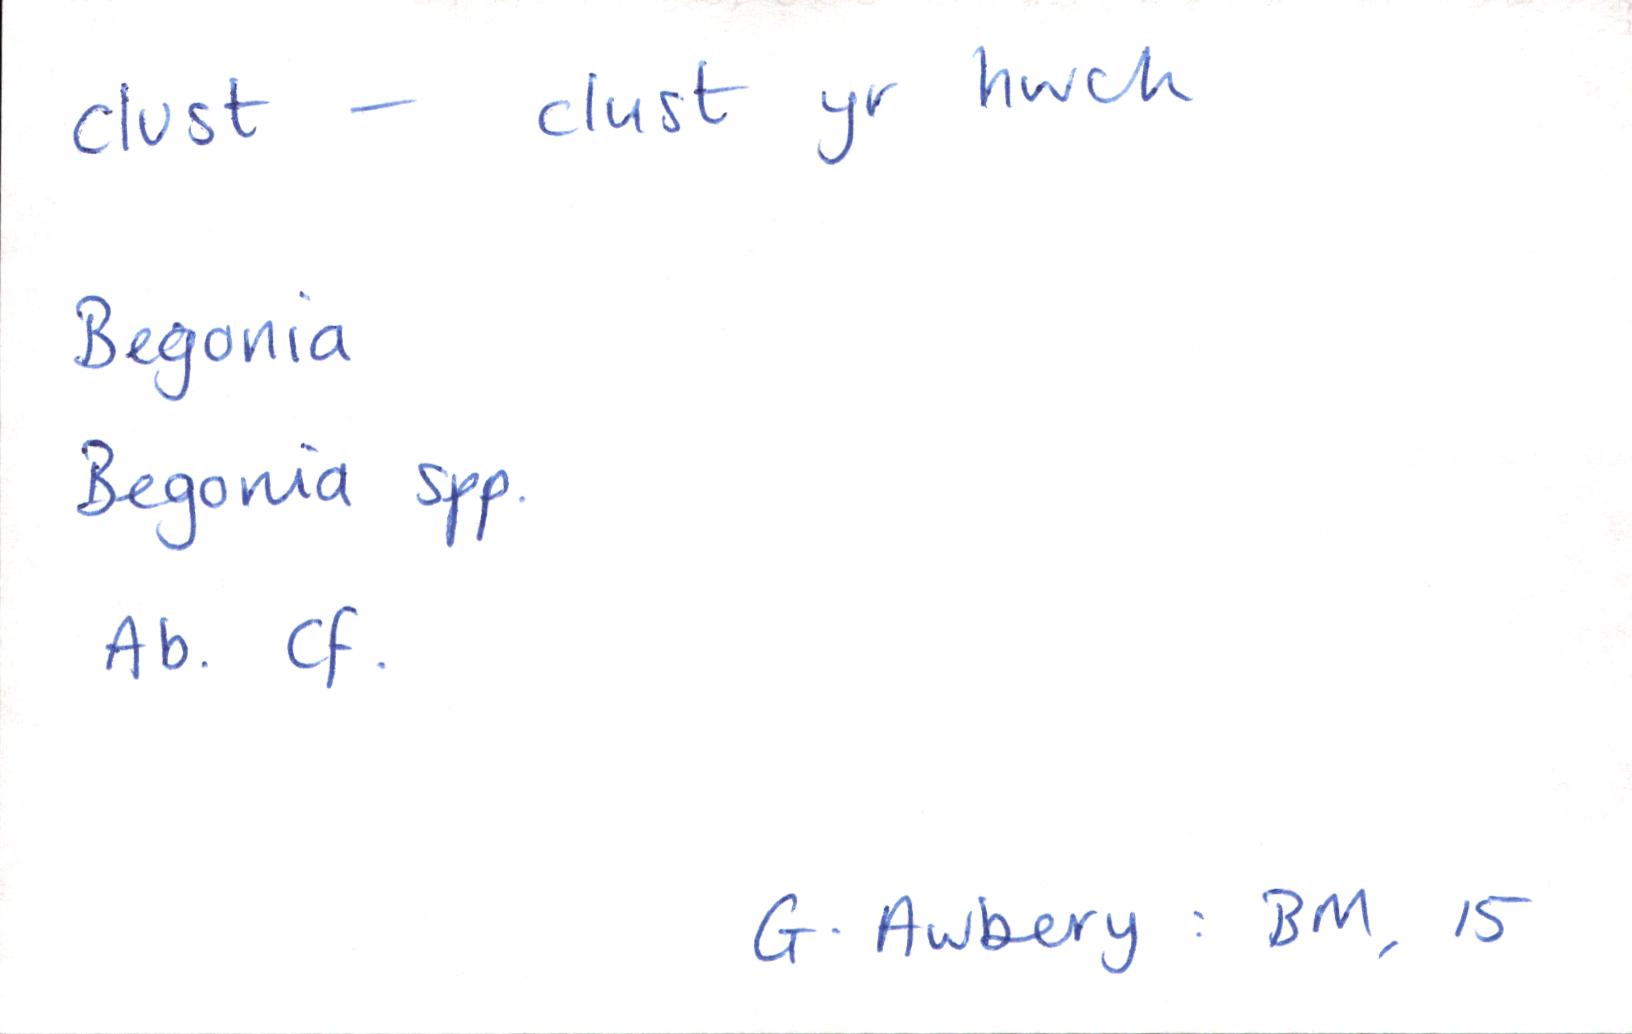 clust — clust yr hwch
Begonia
Begonia spp.
Ab. Cf.
G. Awbery : BM, 15